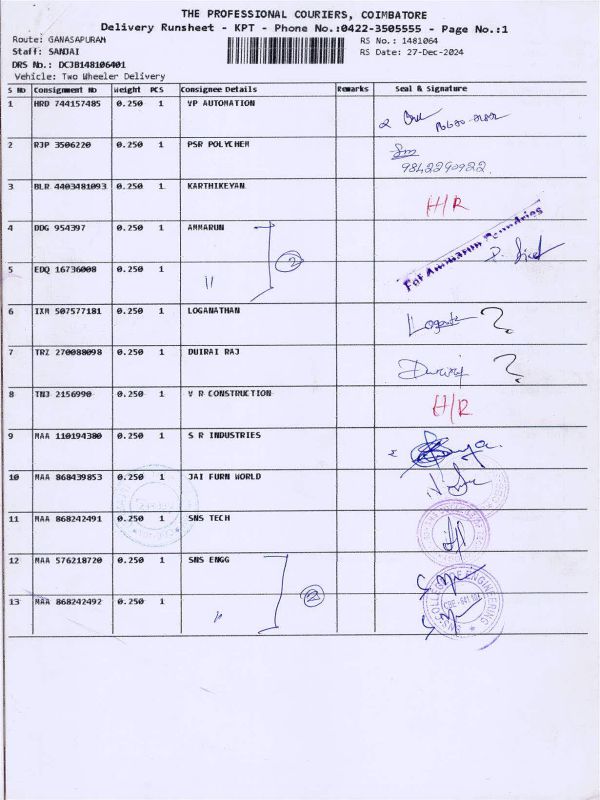 THE PROFESSIONAL COURIERS, COIMBATORE
Delivery Runsheet - KPT - Phone No.:0422-3505555 - Page No.:1
Route: GANASAPURAM
RS No.: 1481064
Staff: SANJAI
RS Date: 27-Dec-2024
DRS No.: DCJB148106401
Vehicle: Two Wheeler Delivery
S No Consignment No Weight PCS Consignee Details Remarks Seal & Signature
1 HRD 744157485 0.250 1 VP AUTOMATION
2 RJP 3506220 0.250 1 PSR POLYCHEM
9842290922
3 BLR 4403481093 0.250 1 KARTHIKEYAN H/R
4 DDG 954397 0.250 1 AMMARUN 2
For Ammarun Foundries
5 EDQ 16736008 0.250 1 〃
6 IXM 507577181 0.250 1 LOGANATHAN ?
7 TRZ 270088098 0.250 1 DUIRAI RAJ Durairaj ?
8 TNJ 2156990 0.250 1 V R CONSTRUCTION H/R
9 MAA 110194380 0.250 1 S R INDUSTRIES
10 MAA 868439853 0.250 1 JAI FURN WORLD
11 MAA 868242491 0.250 1 SNS TECH
12 MAA 576218720 0.250 1 SNS ENGG 2
13 MAA 868242492 0.250 1 〃
SNS COLLEGE OF ENGINEERING